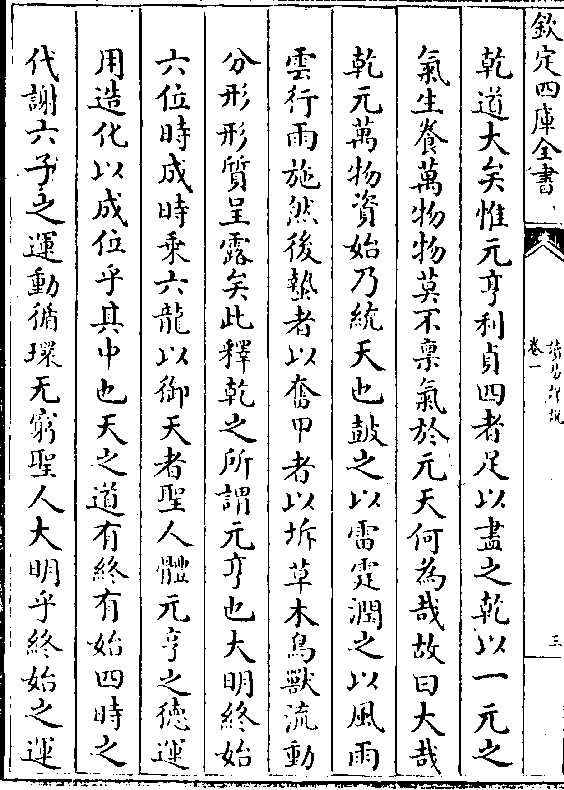 欽定四庫全書
卷一
三
乾道大矣惟元亨利貞四者足以盡之乾以一元之
氣生養萬物物莫不稟氣於元天何為哉故曰大哉
乾元萬物資始乃統天也鼓之以雷霆潤之以風雨
雲行雨施然後蟄者以奮甲者以坼草木鳥獸流動
分形形質呈露矣此釋乾之所謂元亨也大明終始
六位時成時乗六龍以御天者聖人體元亨之徳運
用造化以成位乎其中也天之道有終有始四時之
代謝六子之運動循環无窮聖人大明乎終始之運